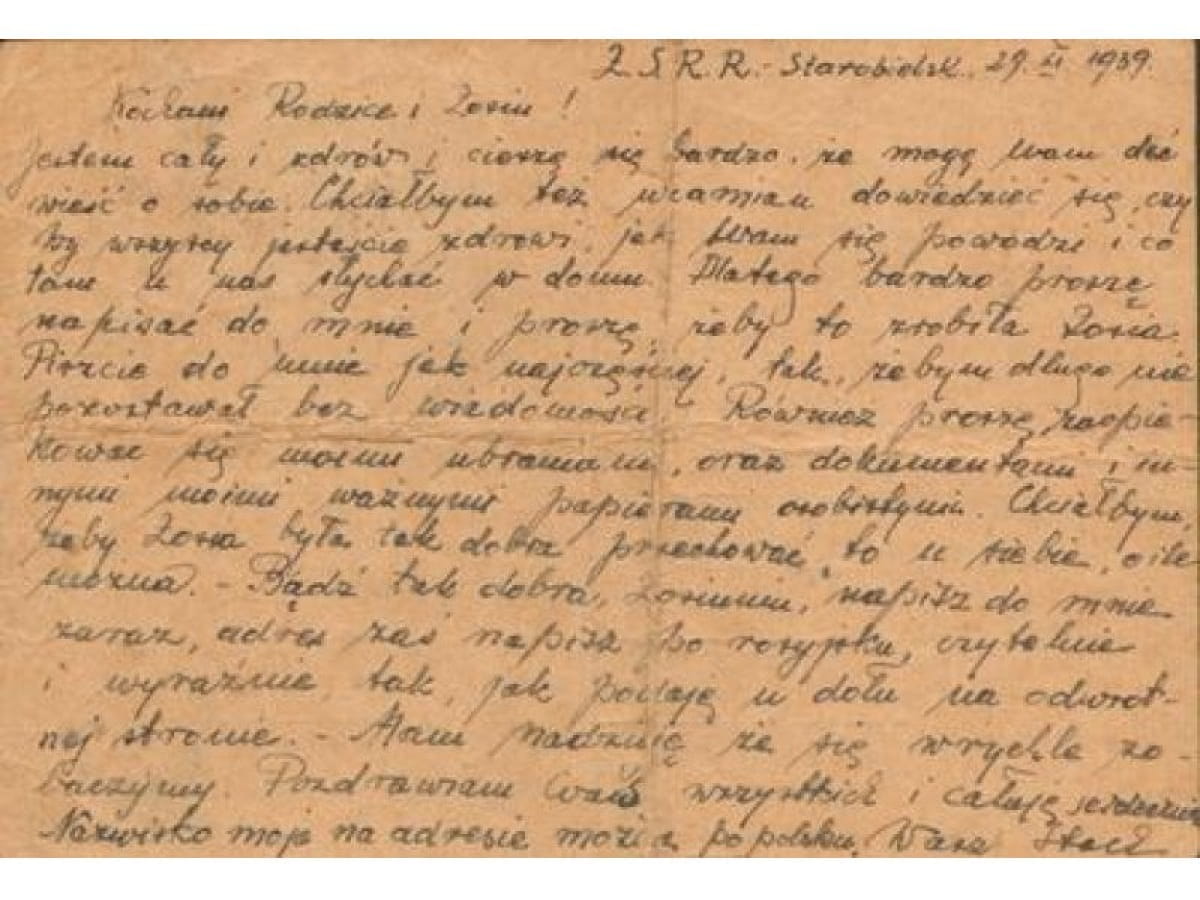 Z.S.R.R. - Starobielsk, 29. XI 1939.
Kochani Rodzice i Zosiu!
Jestem cały i zdrów i cieszę się bardzo, że mogę Wam dać
wieść o sobie. Chciałbym też wzamian dowiedzieć się, czy
wszyscy jesteście zdrowi, jak Wam się powodzi i co
tam u nas słychać w domu. Dlatego bardzo proszę
napisać do mnie i proszę, żeby to zrobiła Zosia.
Piszcie do mnie jak najczęściej, tak, żebym długo nie
pozostawał bez wiadomości. Również proszę zaopie-
kować się moimi ubraniami, oraz dokumentami i in-
nymi moimi ważnymi papierami osobistymi. Chciałbym,
żeby Zosia była tak dobra przechować to u siebie, o ile
można. - Bądź tak dobra, Zosiuniu, napisz do mnie
zaraz, adres zaś napisz po rosyjsku, czytelnie
i wyraźnie, tak, jak podaję u dołu na odwrot-
nej stronie. - Mam nadzieję że się wrychle zo-
baczymy. Pozdrawiam Was wszystkich i całuję serdecznie
Nazwisko moje na adresie można po polsku. Wasz